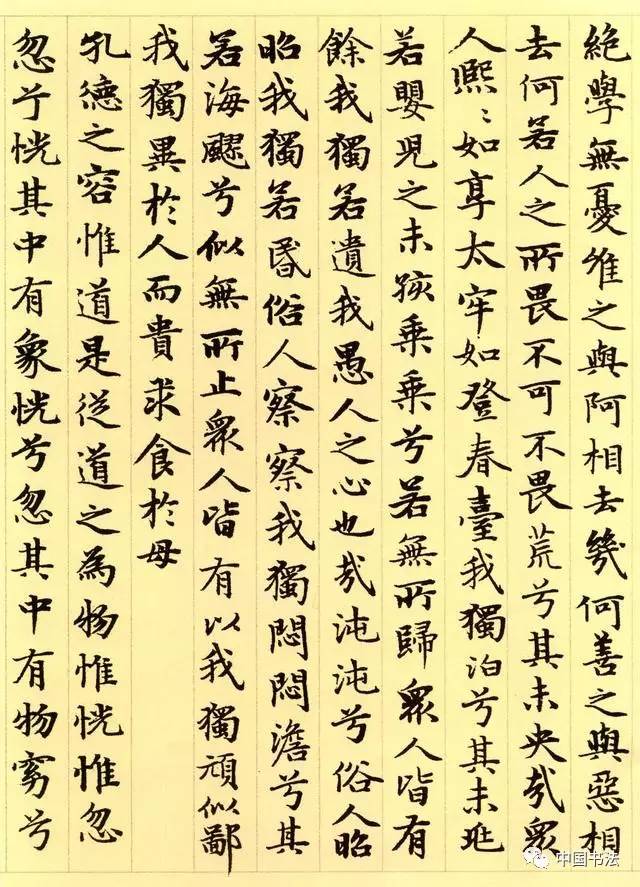 絶學無憂唯之與阿相去幾何善之與惡相
去何若人之所畏不可不畏荒兮其未央哉衆
人熙〻如享太牢如登春臺我獨泊兮其未兆
若嬰兒之未孩乘乘兮若無所歸衆人皆有
餘我獨若遺我愚人之心也哉沌沌兮俗人昭
昭我獨若昏俗人察察我獨悶悶澹兮其
若海飂兮似無所止衆人皆有以我獨頑似鄙
我獨異於人而貴求食於母
孔德之容惟道是從道之為物惟恍惟忽
忽兮恍其中有象恍兮忽其中有物窈兮
中国书法